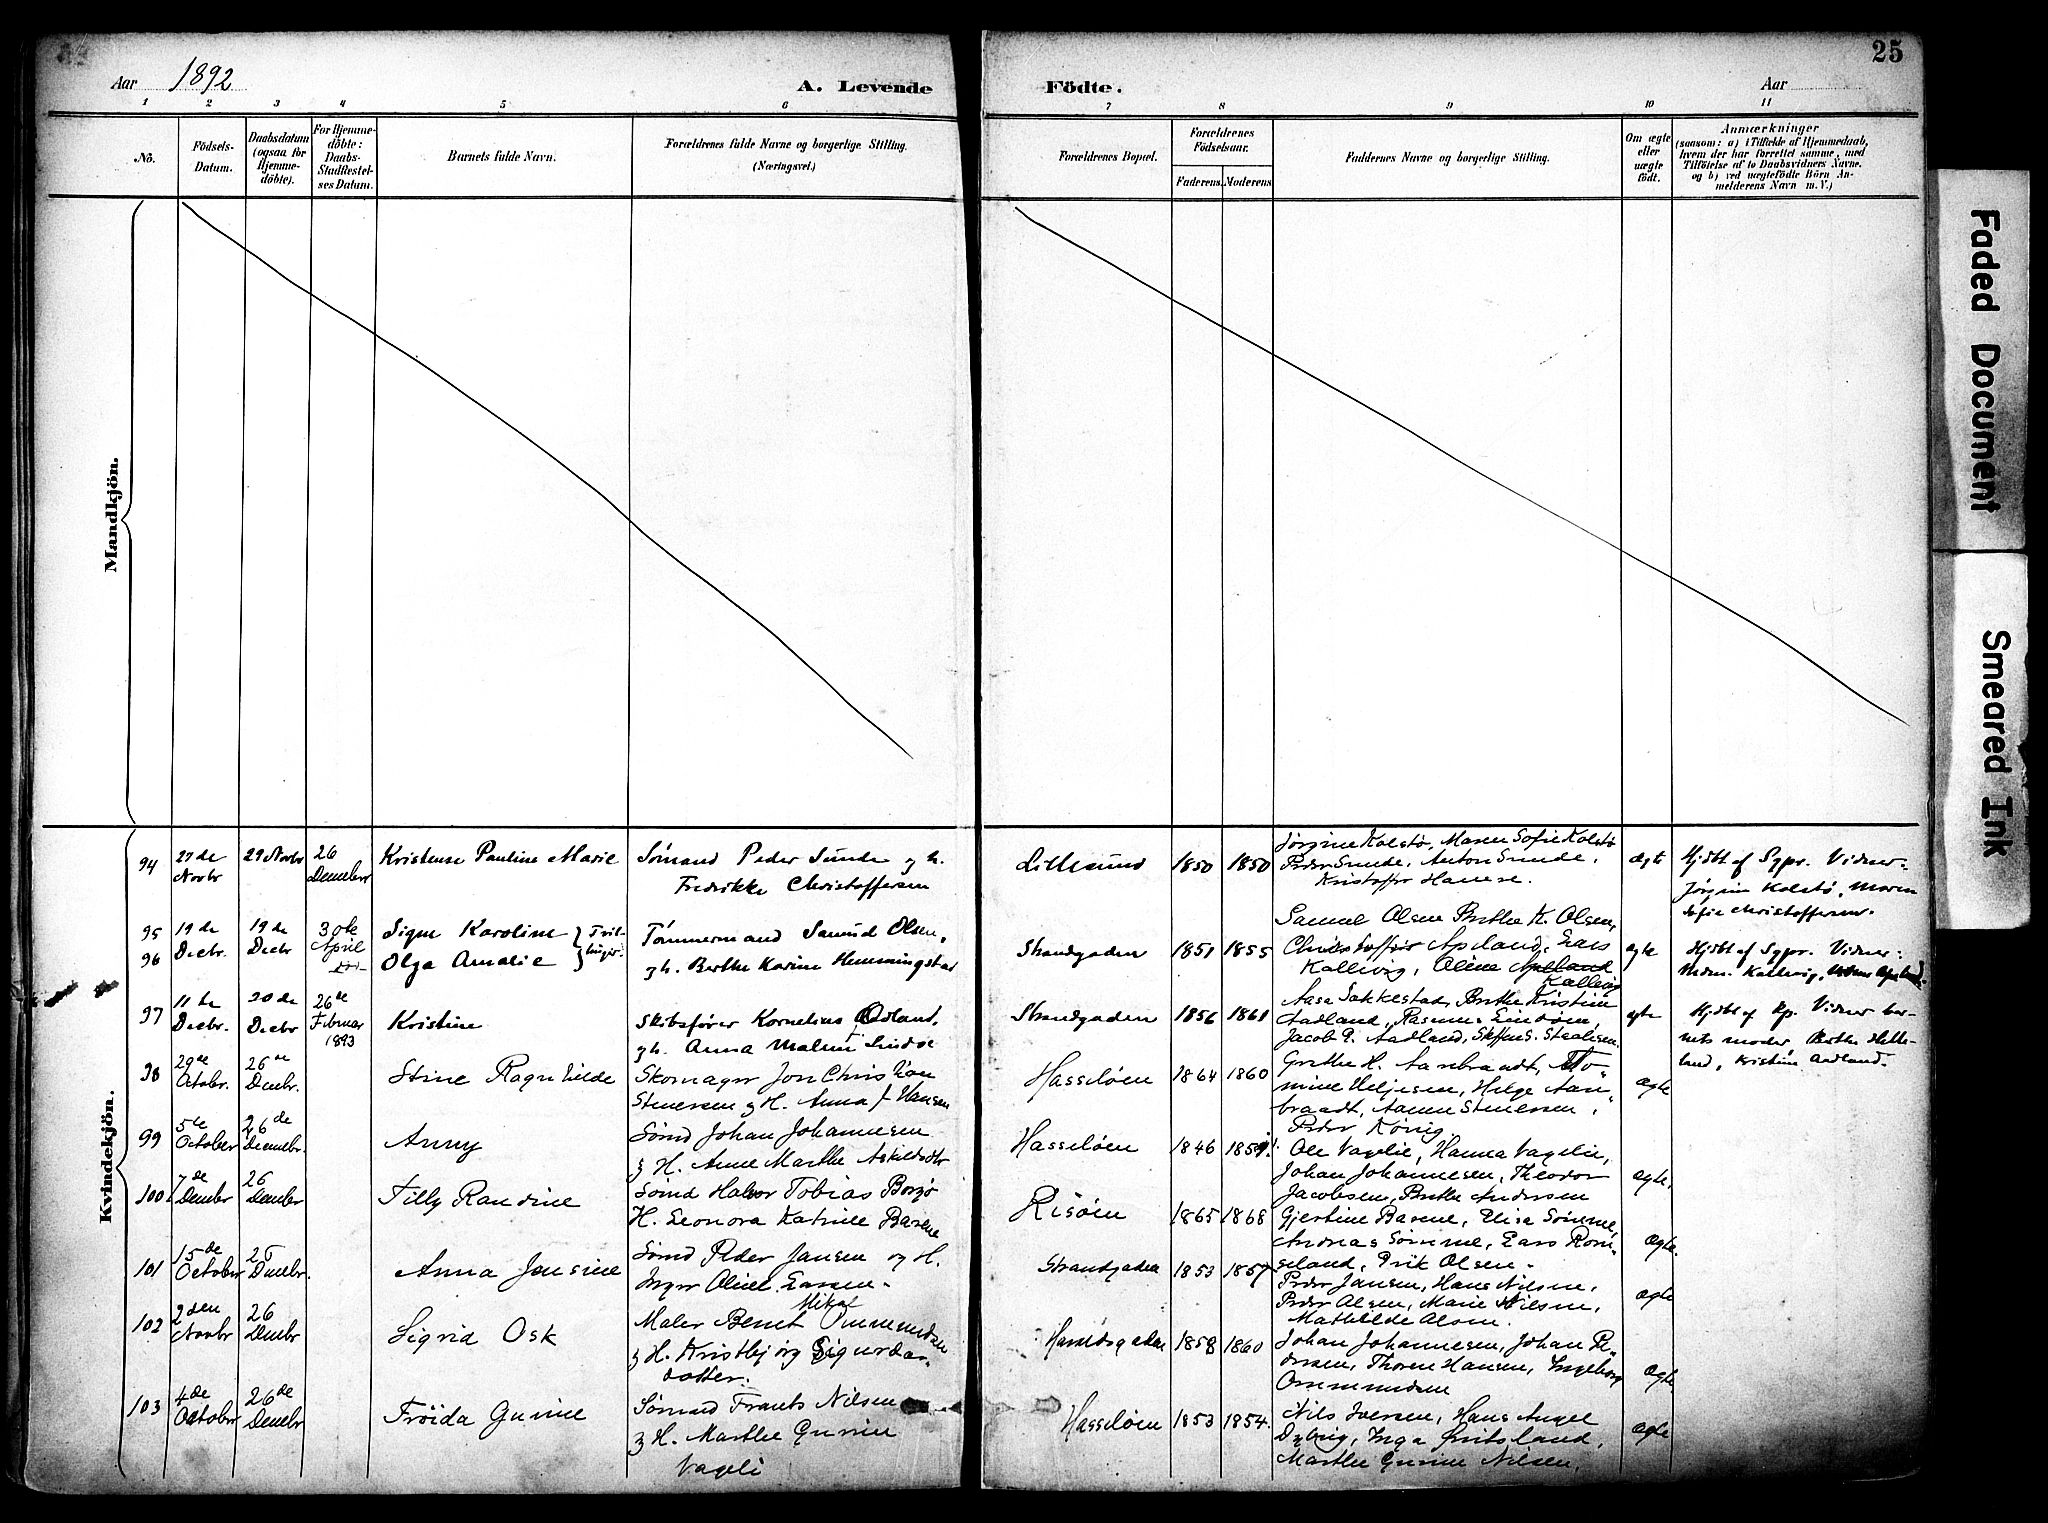 25
Aar 1892 A. Levende Födte. Aar
1 2 3 4 5 6 7 8 9 10 11
No.
Födsels-
Datum.
Daabsdatum
(ogsaa for
Hjemme-
döbte).
For Hjemme-
döbte:
Daabs-
Stadfestel-
ses Datum.
Barnets fulde Navn.
Forældrenes fulde Navne og borgerlige Stilling.
(Næringsvei.)
Forældrenes Bopæl.
Forældrenes
Födselsaar.
Faderens. Moderens
Faddernes Navne og borgerlige Stilling.
Om ægte
eller
uægte
födt.
Anmærkninger
(saasom: a) i Tilfælde af Hjemmedaab,
hvem der har forrettet samme, med
Tilföielse af to Daabsvidners Navne.
og b) ved uægtefödte Börn An-
melderens Navn m. V.)
Mandkjön.
Kvindekjön.
94
27de
Novbr
29 Novbr
26
Decembr
Kristense Pauline Marie
Sømand Peder Sunde og h.
Fredrikke Christoffersen
Lillesund
1850 1850
Jørgine Kolstø, Maren Sofie Kolstø
Peder Sunde, Anton Sunde,
Kristoffer Hanese.
ægte
Hjdbt af Sygpr. Vidner-
Jørgine Kolstø, Maren
Sofie Christoffersen.
95
96
19de
Decbr.
19de
Decbr
30te
April
Signe Karoline
Olga Amalie
Tvil-
linger.
Tømmermand Samuel Olsen,
og h. Berthe Karine Hemmingstad
Strandgaden
1851 1855
Samuel Olsen Berthe K. Olsen,
Christoffer Apeland, Lars
Kallevig, Oline Apeland
Kallevig
ægte
Hjdbt af Sygpr. Vidner:
Kallevig,
97
11te
Decbr.
20de
Decbr
26de
Februar
1893
Kristine
Skibsfører Kornelius Odland,
og h. Anna Malene Lindøe
Strandgaden
1856 1861
Aasa Sakkestad, Berthe Kristine
Aadland, Rasmus Lindøen,
Jacob P. Aadland, Steffen S. Staalesen
ægte
Hjdbt af Sp. Vidner bar-
nets moder Berthe Helle-
land, Kristine Aadland.
98
29de
Octobr.
26de
Decbr.
Stine Ragnhilde
Skomager Jon Christian
Stenersen og H. Anna J. Hansen
Hasseløen
1864 1860
Grethe H. Aarebraadt, Tho-
mine Heljesen, Helge Aare-
braadt, Aanen Stenersen,
Peder König.
ægte
99
5te
October
26de
Decembr.
Anny
Sømd Johan Johannesen
og H. Anne Marthe Askildsdtr
Hasseløen
1846
Ole Vagelie, Hanna Vagelie,
Johan Johannesen, Theodor
Jacobsen, Berthe Andersen
ægte.
100
7de
Decembr
26
Decembr
Tilly Randine
Sømd Halvor Tobias Borgø
H. Leonora Katrine Barene
Risøen
1865 1868
Gjertine Barene, Elisa Sømme,
Andreas Sømme, Lars Rom-
seland, Erik Olsen.
ægte.
101
15de
October
26
Decembr.
Anna Jensine
Sømd Peder Jansen og H.
Inger Oline Larsen.
Strandgaden
1853 1857
Peder Jansen, Hans Nilsen,
Peder Olsen, Marie Nilsen,
Mathilde Olsen.
ægte
102
2den
Novbr
26
Decbr
Sigrid Osk
Mikal
Maler Benet Ommundsen
og H. Kristbjörg Sigurdar-
dotter.
Haraldsgaden
1858 1860
Johan Johannesen, Johan Pe-
dersen, Thoren Hansen, Ingeborg
Ommundsen
ægte
103
4de
October
26de
Decembr
Fröida Gurine
Sømand Frants Nilsen
og H. Marthe Gurine
Vageli
Hasseløen
1853 1854.
Nils Iversen, Hans Angel
Dybvig, Inga Kvitsland,
Marthe Gurine Nilsen.
ægte
Faded Document
Smeared Ink